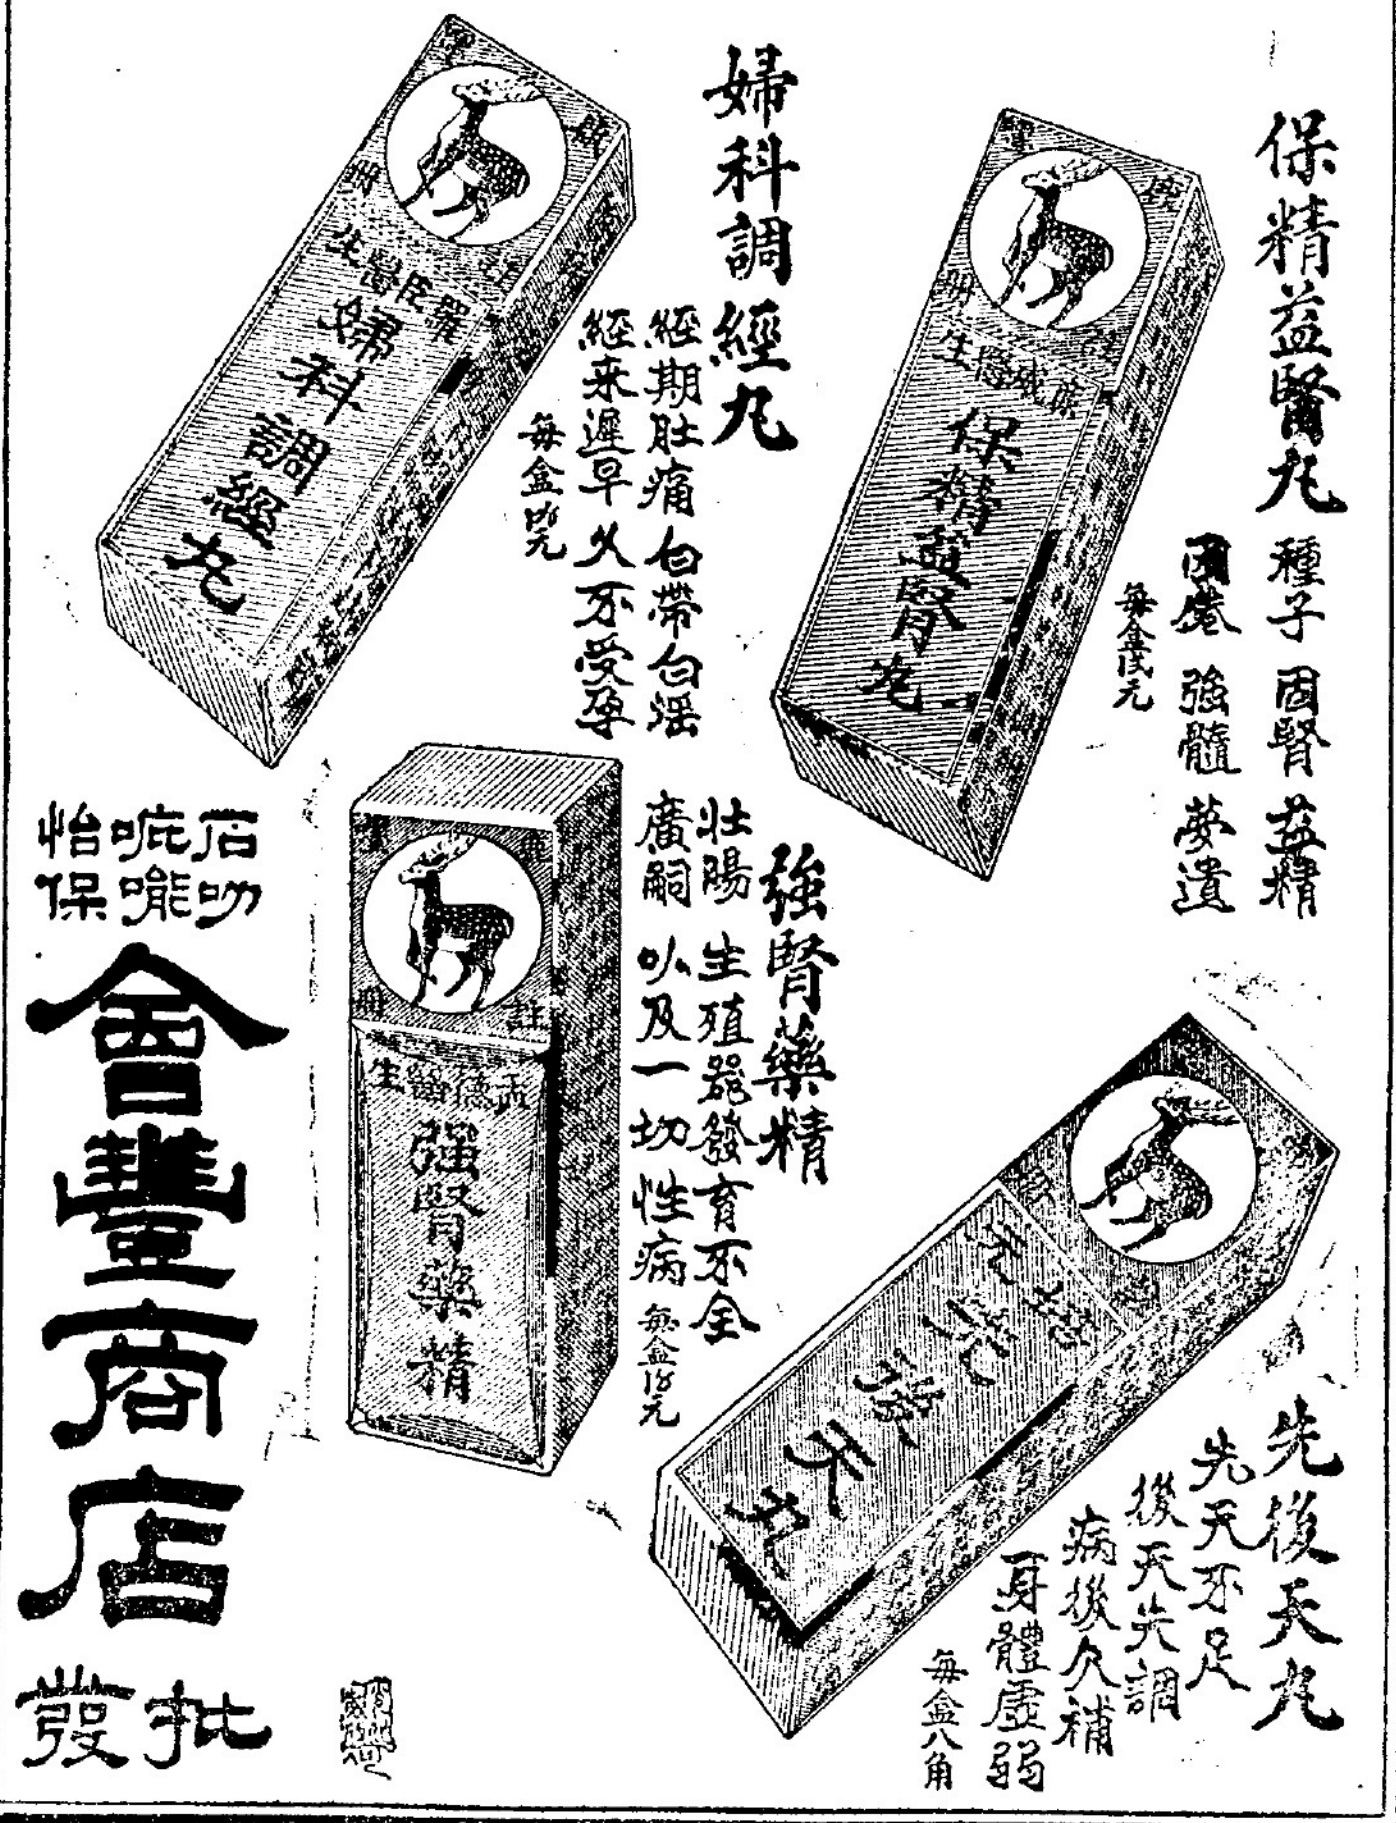 保精益腎丸
種子 固腎 益精
固倦 強髓 夢遺
每盒弍元
生
保精益腎丸
婦科調經丸
經期肚痛 白帶白淫
經來遲早 久不受孕
每盒
元
羅臣醫生
婦科調經丸
強腎藥精
壯陽 生殖器發育不全
廣嗣 以及一切性病
每盒
元
鹿
註冊
孟德醫生
強腎藥精
先後天丸
先天不足
後天失調
病後久補
身體虛弱
每盒八角
先後天丸
石叻
吡嚨
怡保
會豐商店
批發